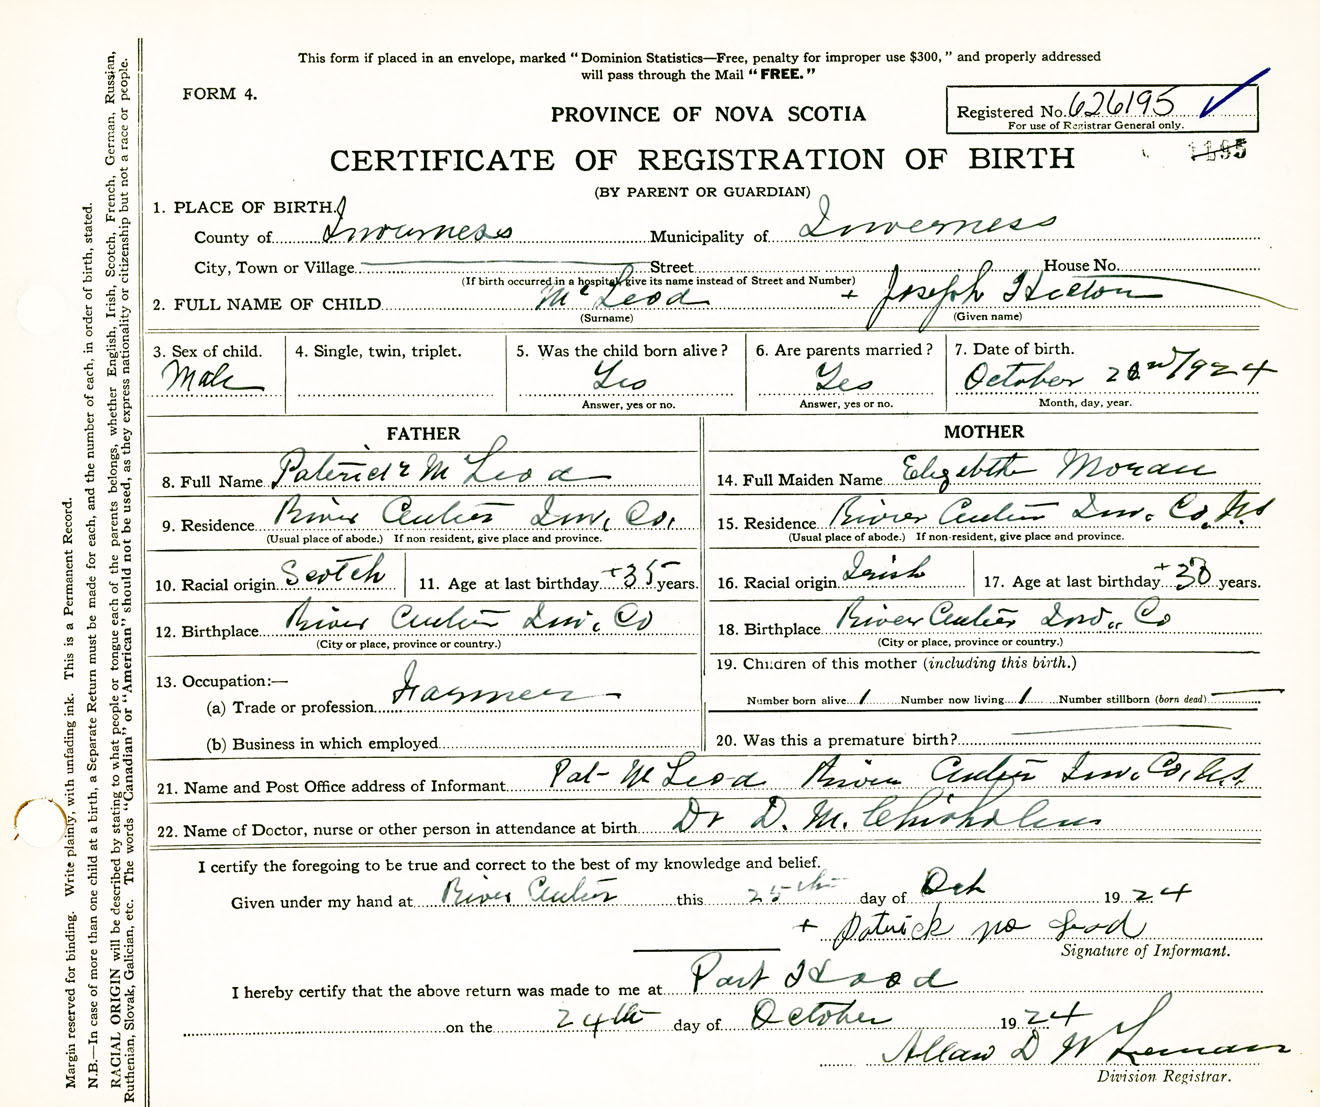 This form if placed in an envelope, marked "Dominion Statistics—Free, penalty for improper use $300," and properly addressed
will pass through the Mail "FREE."
FORM 4.
PROVINCE OF NOVA SCOTIA
Registered No. 626195
For use of Registrar General only.
1195
CERTIFICATE OF REGISTRATION OF BIRTH
(BY PARENT OR GUARDIAN)
1. PLACE OF BIRTH.
County of Inverness Municipality of Inverness
City, Town or Village Street House No.
(If birth occurred in a hospital, give its name instead of Street and Number)
2. FULL NAME OF CHILD McLeod + Joseph
(Surname) (Given name)
3. Sex of child. 4. Single, twin, triplet. 5. Was the child born alive? 6. Are parents married? 7. Date of birth.
Male Yes Yes October 22nd/1924
Answer, yes or no. Answer, yes or no. Month, day, year.
FATHER MOTHER
8. Full Name Patrick McLeod 14. Full Maiden Name Elizabeth Moran
9. Residence River Center Inv. Co. 15. Residence River Center Inv. Co. N.S
(Usual place of abode.) If non-resident, give place and province. (Usual place of abode.) If non-resident, give place and province.
10. Racial origin Scotch 11. Age at last birthday +35 years. 16. Racial origin Irish 17. Age at last birthday +33 years.
12. Birthplace River Center Inv. Co 18. Birthplace River Center Inv. Co
(City or place, province or country.) (City or place, province or country.)
13. Occupation:— 19. Children of this mother (including this birth.)
(a) Trade or profession Farmer Number born alive 1 Number now living 1 Number stillborn (born dead)
(b) Business in which employed 20. Was this a premature birth?
21. Name and Post Office address of Informant Pat McLeod River Center Inv. Co. N.S.
22. Name of Doctor, nurse or other person in attendance at birth Dr D. M. Chisholm
I certify the foregoing to be true and correct to the best of my knowledge and belief.
Given under my hand at River Center this 25th day of Oct 1924
+ Patrick
Signature of Informant.
I hereby certify that the above return was made to me at Port Hood
on the 24th day of October 1924
Allan D
Division Registrar.
Margin reserved for binding. Write plainly, with unfading ink. This is a Permanent Record.
N.B.—In case of more than one child at a birth, a Separate Return must be made for each, and the number of each, in order of birth, stated.
RACIAL ORIGIN will be described by stating to what people or tongue each of the parents belongs, whether English, Irish, Scotch, French, German, Russian,
Ruthenian, Slovak, Galician, etc. The words "Canadian" or "American" should not be used, as they express nationality or citizenship but not a race or people.